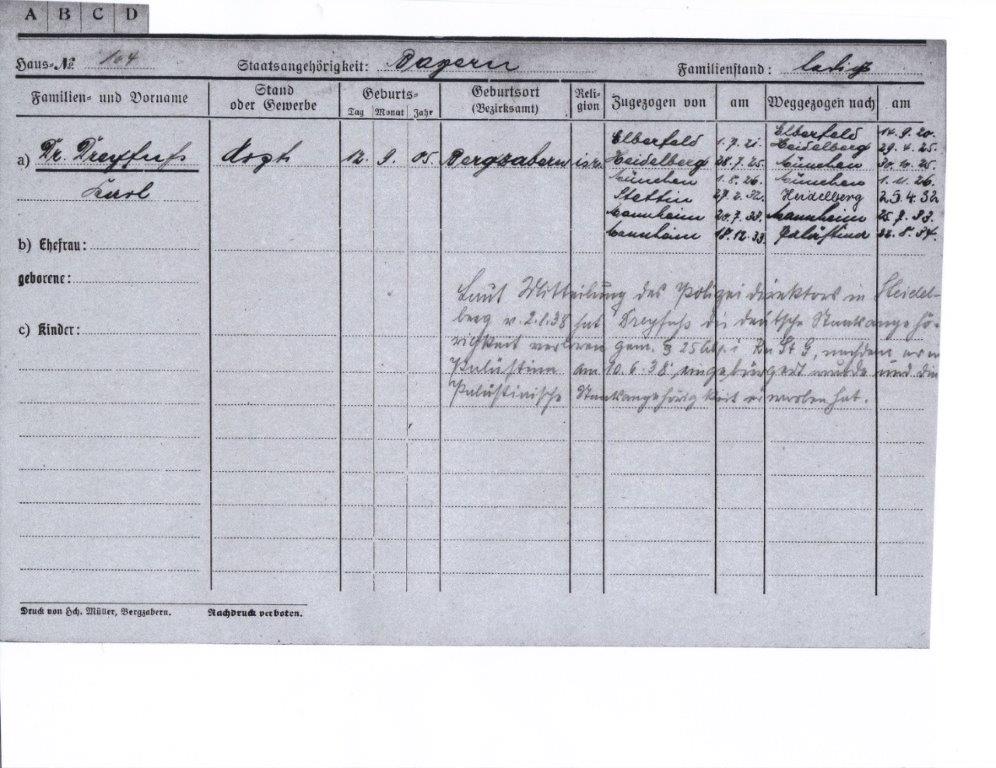 A B C D
Haus-№ 104 Staatsangehörigkeit: Bayern Familienstand: ledig
Familien- und Vorname Stand oder Gewerbe Geburts- Tag Monat Jahr Geburtsort (Bezirksamt) Religion Zugezogen von am Weggezogen nach am
Elberfeld 1.7.21. Elberfeld 14.9.20.
a) Dr. Dreyfuß Arzt 12. 9. 05. Bergzabern isr. Heidelberg 28.7.25. Heidelberg 29.4.25.
München 30.10.25.
Karl München 1.8.26. München 1.11.26.
Stettin Heidelberg 25.4.32.
Mannheim 20.7.33. Mannheim 25.7.33.
b) Ehefrau: Mannheim 18.12.33. Palästina 22.8.34.
geborene:
Laut Mitteilung des Polizeidirektors in Heidel-
berg v. 2.8.38 hat Dreyfuß die deutsche Staatsangehö-
c) Kinder:
rigkeit verloren gem. § 25 Abs. 1 Ru St G, nachdem er in
Palästina am 10.6.38 eingebürgert wurde und die
Palästinische Staatsangehörigkeit erworben hat.
Druck von Hch. Müller, Bergzabern. Nachdruck verboten.